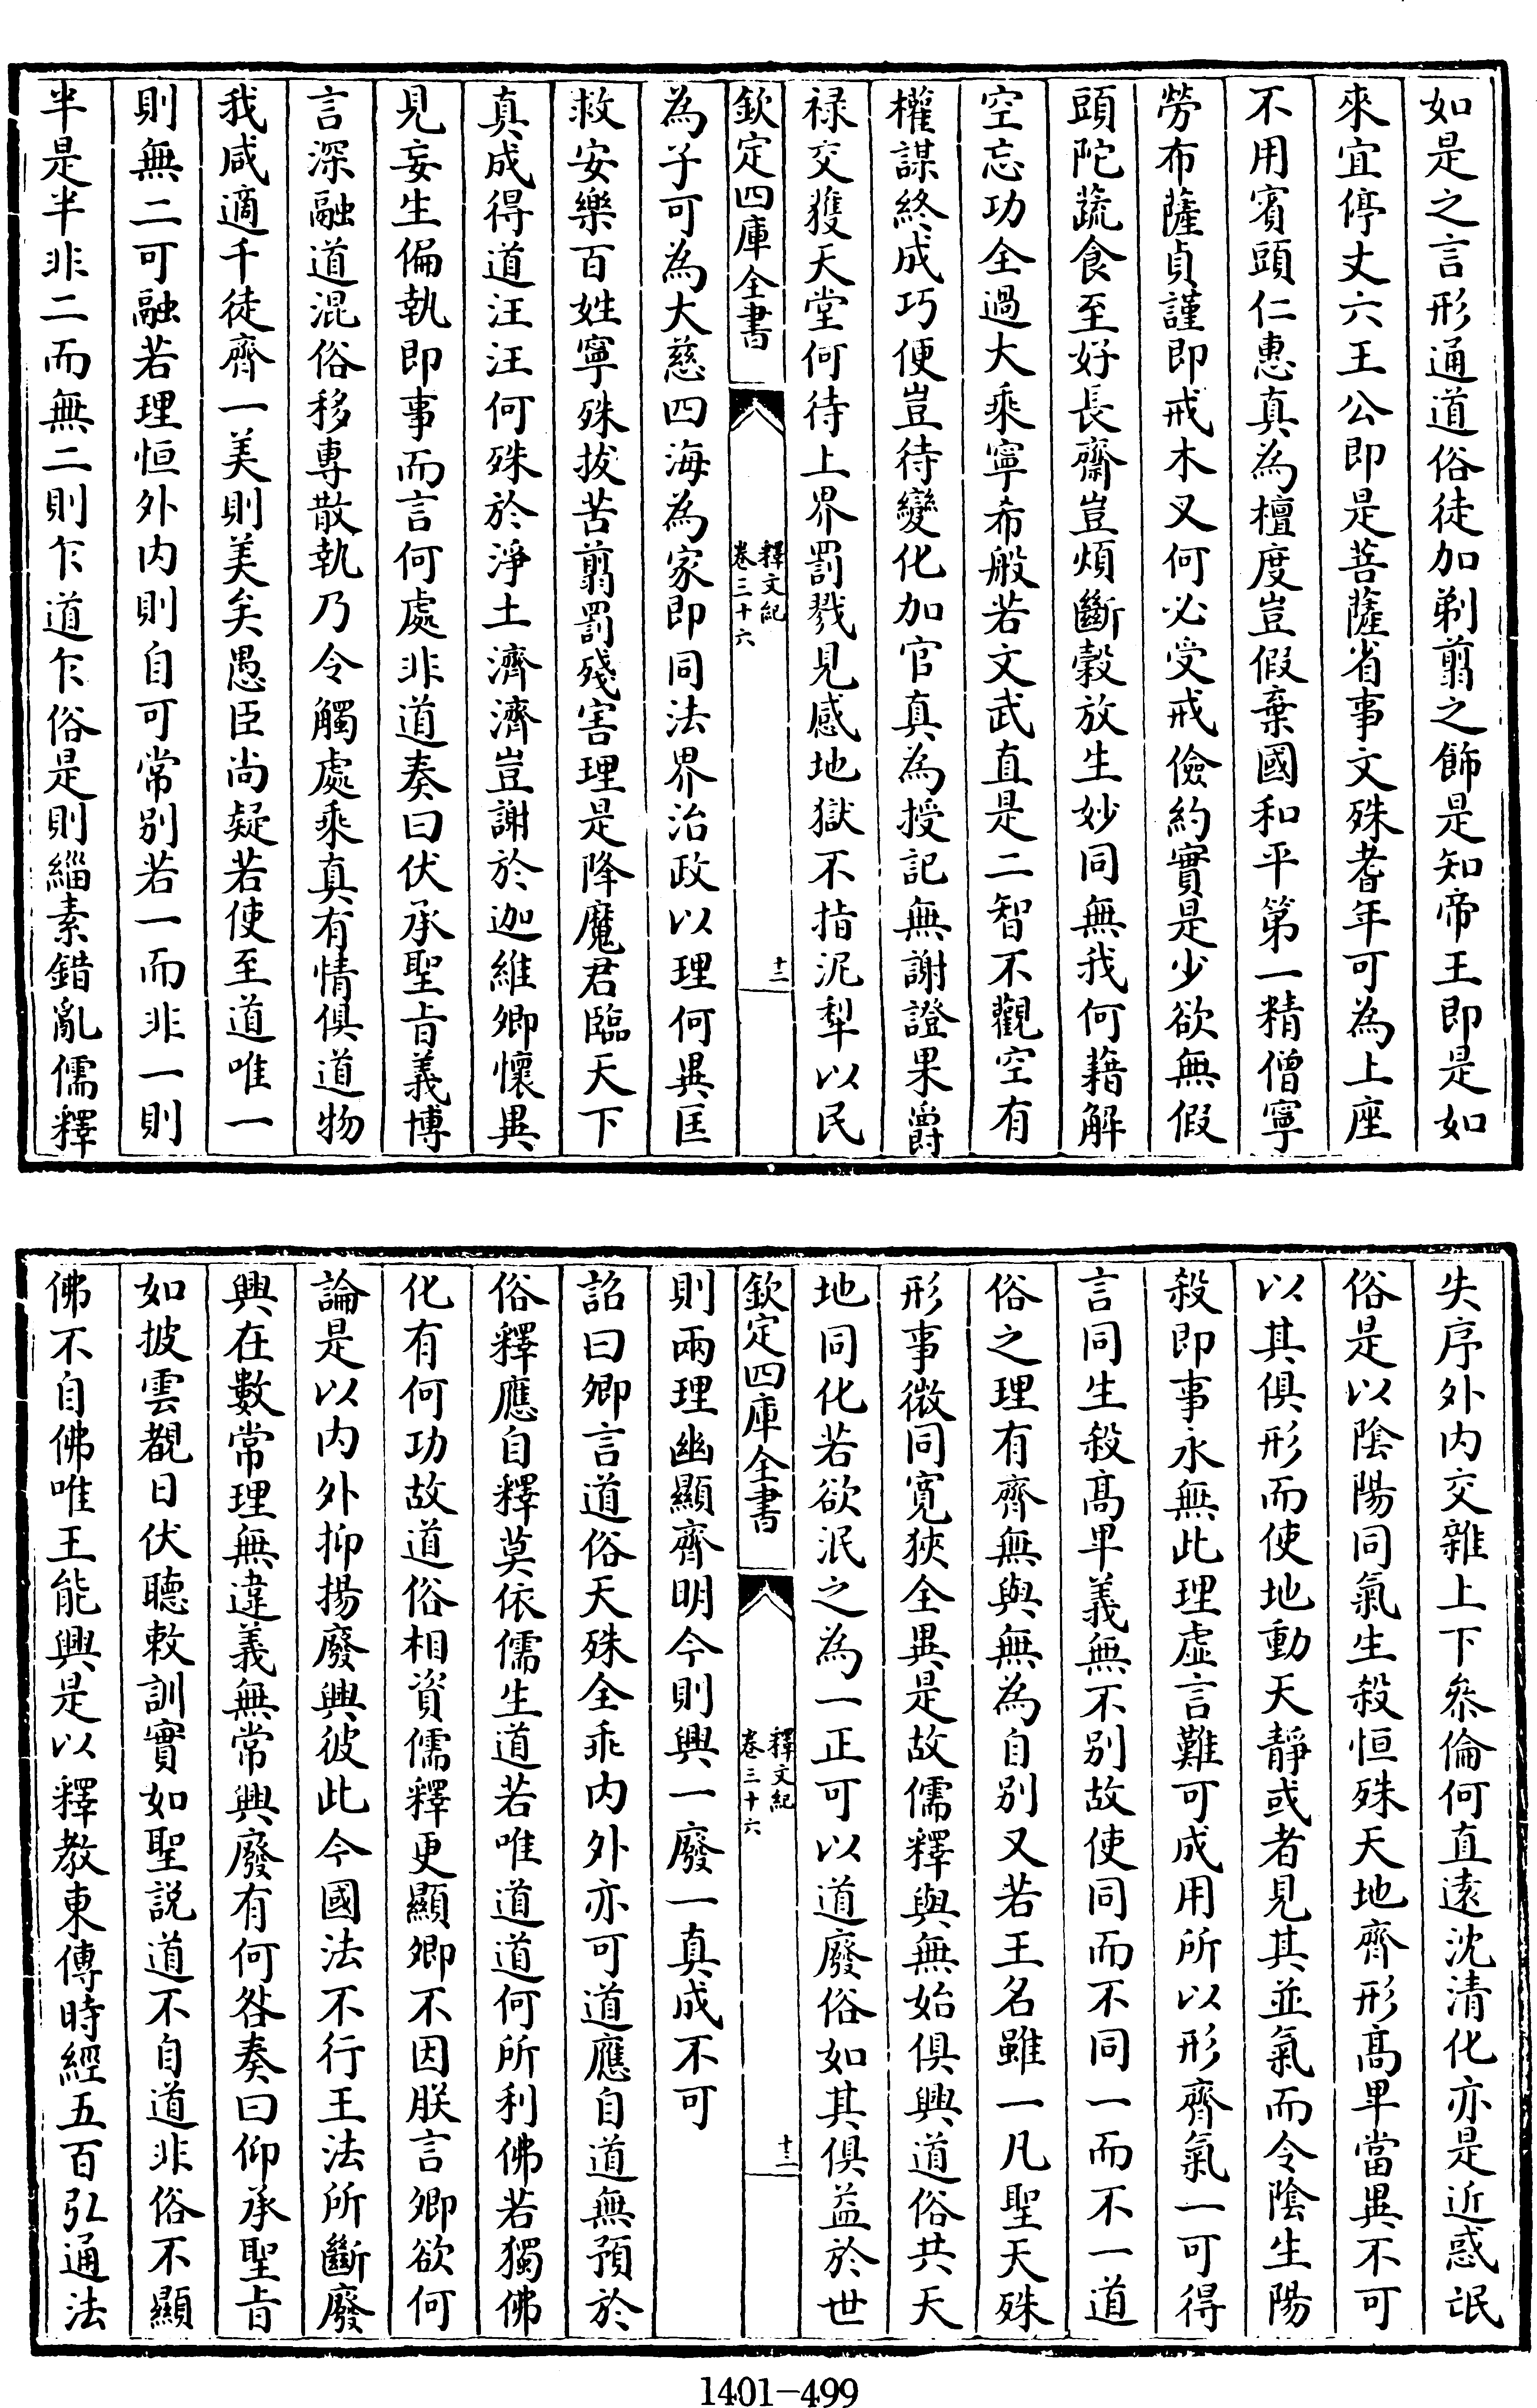 如是之言形通道俗徒加剃翦之飾是知帝王即是如
來宜停丈六王公即是菩薩省事文殊耆年可為上座
不用賓頭仁惠真為檀度豈假棄國和平第一精僧寧
勞布薩貞謹即戒木叉何必受戒儉約實是少欲無假
頭陀蔬食至好長齋豈煩斷榖放生妙同無我何藉解
空忘功全過大乘寧希般若文武直是二智不觀空有
權謀終成巧便豈待變化加官真為授記無謝證果爵
祿交獲天堂何待上界罰戮見感地獄不指泥犁以民
欽定四庫全書
釋文紀
卷三十六
十二
為子可為大慈四海為家即同法界治政以理何異匡
救安樂百姓寧殊拔苦翦罰殘害理是降魔君臨天下
真成得道汪汪何殊於淨土濟濟豈謝於迦維卿懷異
見妄生偏執即事而言何處非道奏曰伏承聖旨義博
言深融道混俗移專散執乃令觸處乘真有情俱道物
我咸適千徒齊一美則美矣愚臣尚疑若使至道唯一
則無二可融若理恒外内則自可常別若一而非一則
半是半非二而無二則乍道乍俗是則緇素錯亂儒釋
失序外内交雜上下參倫何直遠沈清化亦是近惑氓
俗是以陰陽同氣生殺恒殊天地齊形高卑當異不可
以其俱形而使地動天靜或者見其並氣而令陰生陽
殺即事永無此理虚言難可成用所以形齊氣一可得
言同生殺高卑義無不別故使同而不同一而不一道
俗之理有齊無與無為自別又若王名雖一凡聖天殊
形事微同寛狹全異是故儒釋與無始俱興道俗共天
地同化若欲泯之為一正可以道廢俗如其俱益於世
欽定四庫全書
釋文紀
卷三十六
十三
則兩理幽顯齊明今則興一廢一真成不可
詔曰卿言道俗天殊全乖内外亦可道應自道無預於
俗釋應自釋莫依儒生道若唯道道何所利佛若獨佛
化有何功故道俗相資儒釋更顯卿不因朕言卿欲何
論是以内外抑揚廢興彼此今國法不行王法所斷廢
興在數常理無違義無常興廢有何咎奏曰仰承聖旨
如披雲覩日伏聽敕訓實如聖説道不自道非俗不顯
佛不自佛唯王能興是以釋教東傳時經五百弘通法
1401—499